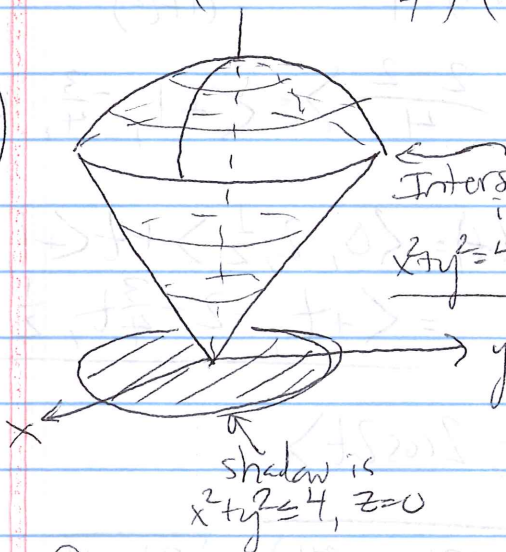 Inters
x²+y²=4
y
x
shadow is
x²+y²≤4, z=0